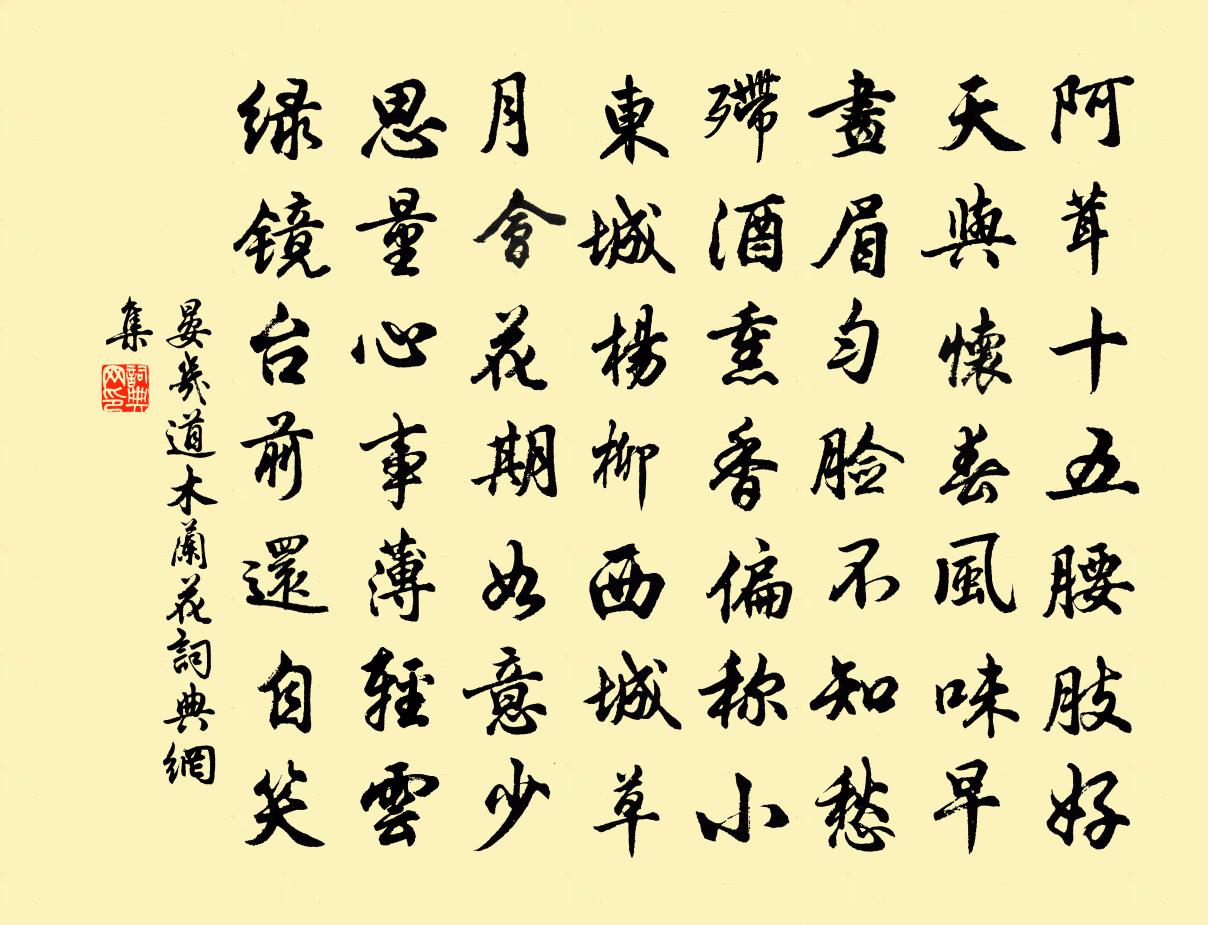 阿茸十五腰肢好
天與懷春風味早
畫眉勻脸不知愁
殢酒熏香偏称小
東城楊柳西城草
月會花期如意少
思量心事薄輕雲
绿镜台前還自笑
晏幾道木蘭花詞典網
集
詞典
网印